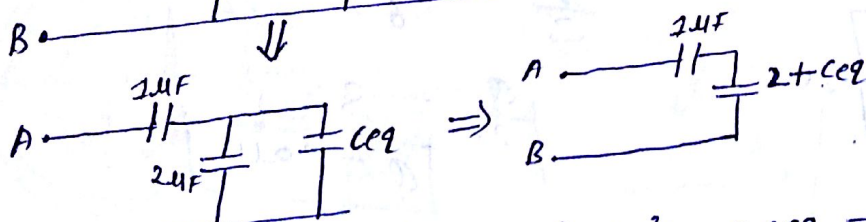 B
1μF
A
2μF
Ceq
⇒
1μF
A
2+Ceq
B